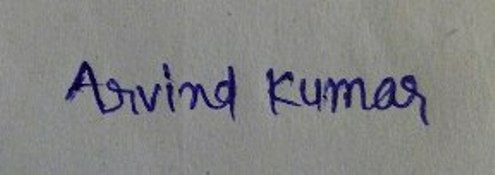 Arvind Kumar